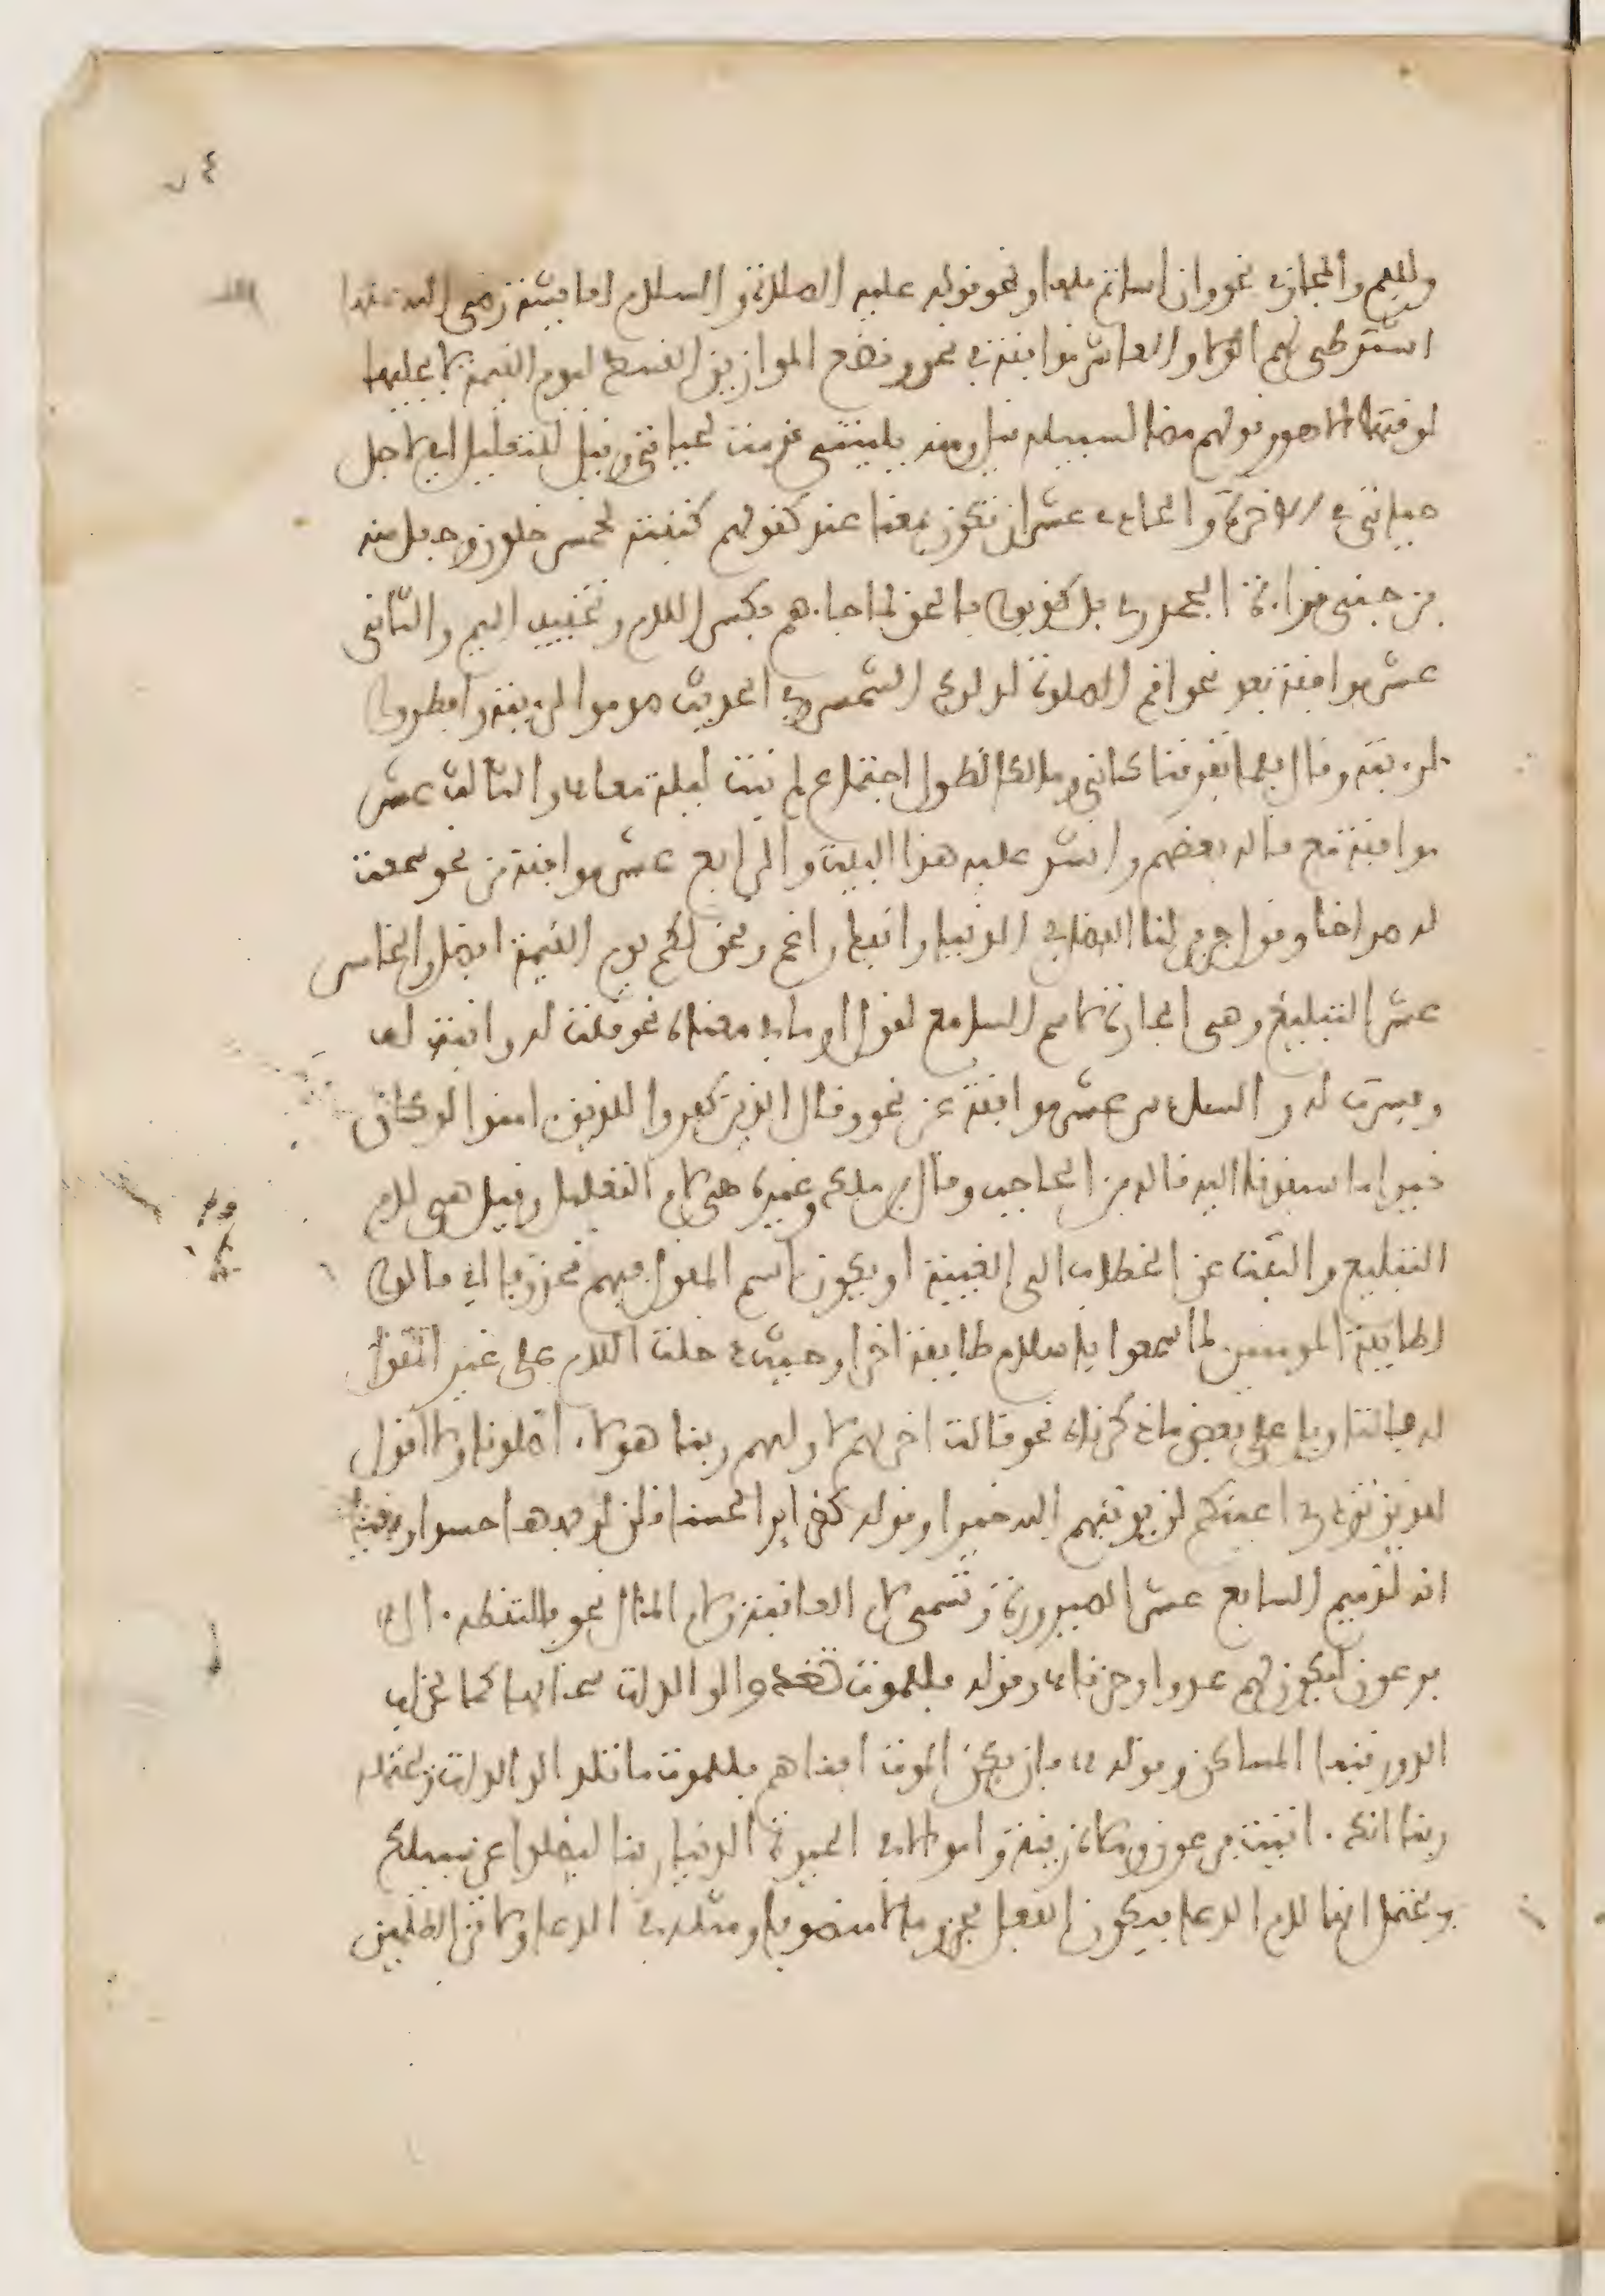 ٧٤
وللفم والمجازي نحو وان اساتم فلها ونحو قوله عليه الصلاة والسلام لعايشة رضي الله عنها
اشترطي لهم الولا والعاشر موافقة في نحو ونضع الموازين القسط ليوم القيمة لا يجليها
لوقتها الا هو وقولهم مضا لسبيله قيل ومنه يليتني قدمت لحياتي وقيل للتعليل اي لاجل
حياتي في الاخرة والحادي عشر ان تكون بمعنا عند كقولهم كتبته لخمس خلون وجعل منه
بن جني قراءة الجحدري بل كذبوا بالحق لما جاءهم بكسر اللام وتخفيف الميم والثاني
عشر موافقة بعد نحو اقم الصلوة لدلوك الشمس وفي الحديث صوموا لرءيته وافطروا
لرءيته وقال فلما تفرقنا كاني ومالكا لطول اجتماع لم نبت ليلة معا والثالث عشر
موافقة مع قاله بعضهم وانشد عليه هذا البيت والرابع عشر موافقة من نحو سمعت
له صراخا وقول جرير لنا الفضل في الدنيا وانفك راغم ونحن لكم يوم القيمة افضل والخامس
عشر التبليغ وهي الجارة لاسم السامع لقول او ما في معناه نحو قلت له واذنت له
وفسرت له والسادس عشر موافقة عن نحو وقال الذين كفروا للذين امنوا لو كان
خيرا ما سبقونا اليه قاله بن الحاجب وقال بن ملك وغيره هي لام التعليل وقيل هي لام
التبليغ والتفت عن الخطاب الى الغيبة او يكون اسم المقول فيهم محذوفا اي قالوا
لطايفة المومنين لما سمعوا باسلام طايفة اخرا وحيث دخلت اللام على غير المقول
له فالتاويل على بعض ما ذكرناه نحو قالت اخريهم لاوليهم ربنا هولاء اضلونا ولا اقول
للذين تزدري اعينكم لن يوتيهم الله خيرا وقوله كضراير الحسنا قلن لوجهها حسدا وبغيا
انه لذميم السابع عشر الصيرورة وتسمى لام العاقبة ولام المئال نحو فالتقطه ءال
فرعون ليكون لهم عدوا وحزنا وقوله فللموت تغذو الوالدات سخالها كما لخراب
الدور تبنى المساكن وقوله فان يكن الموت افناهم فللموت ما تلد الوالدات ويحتمله
ربنا انك ءاتيت فرعون وملاه زينة واموالا في الحيوة الدنيا ربنا ليضلوا عن سبيلك
ويحتمل انها لام الدعا فيكون الفعل مجزوما لا منصوبا ومثله في الدعا ولا تزد الظلمين